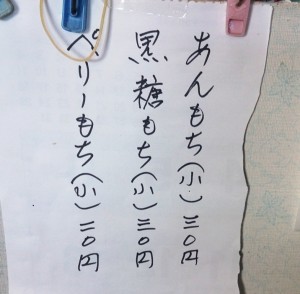 あんもち(小)三〇円
黒糖もち(小)三〇円
ベリーもち(小)三〇円